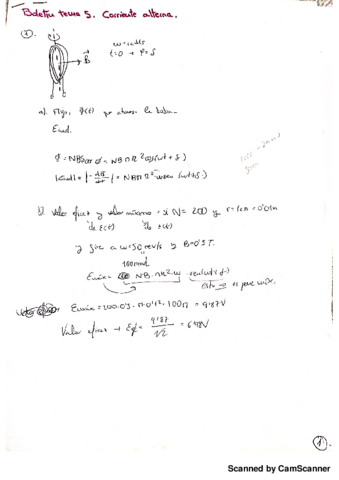 Boletín tema 5. Corriente alterna.
①.
ω = rad/s
t=0 → φ=δ
B
a) Flujo, φ(t) que atraviesa la bobina.
Eind.
φ = NBS cos φ = NBπR² cos(ωt + δ)
|εind| = |-dφ/dt| = NBπR²ω sen(ωt+δ)
b) Valor eficaz y valor máximo si N = 200 y r = 1cm = 0'01m
de ε(t) de ε(t)
y gira a ω=50 rev/s y B=0'5T.
100π rad
Emáx = NB·πR²·ω · sen(ωt+δ)
Emáx = 200·0'5·π·0'01²·100π = 9'87V
Valor eficaz → Eef = 9'87/√2 = 6'98V
1
Scanned by CamScanner